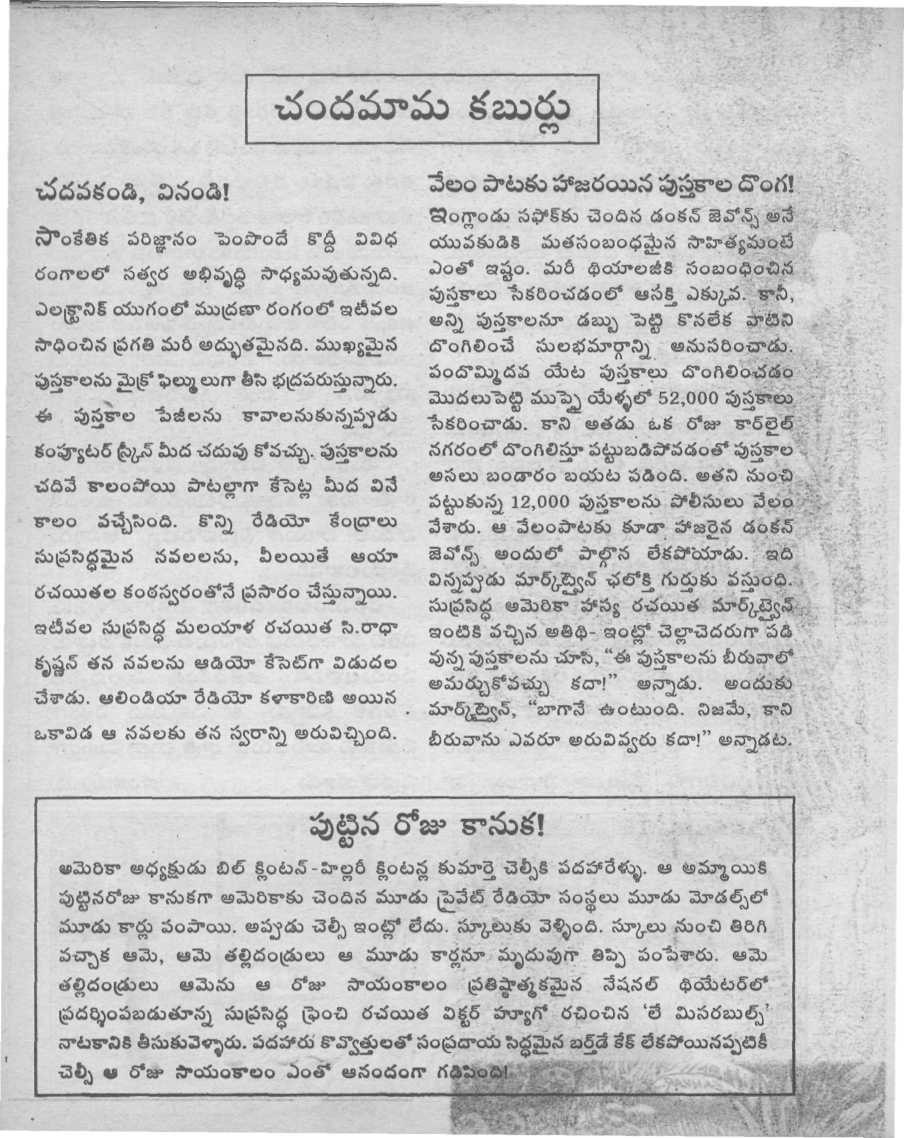 చందమామ కబుర్లు
చదవకండి, వినండి!
సాంకేతిక పరిజ్ఞానం పెంపొందే కొద్దీ వివిధ
రంగాలలో సత్వర అభివృద్ధి సాధ్యమవుతున్నది.
ఎలక్ట్రానిక్ యుగంలో ముద్రణా రంగంలో ఇటీవల
సాధించిన ప్రగతి మరీ అద్భుతమైనది. ముఖ్యమైన
పుస్తకాలను మైక్రో ఫిల్ములుగా తీసి భద్రపరుస్తున్నారు.
ఈ పుస్తకాల పేజీలను కావాలనుకున్నప్పడు
కంప్యూటర్ స్క్రీన్ మీద చదువు కోవచ్చు. పుస్తకాలను
చదివే కాలంపోయి పాటల్లాగా కేసెట్ల మీద వినే
కాలం వచ్చేసింది. కొన్ని రేడియో కేంద్రాలు
సుప్రసిద్ధమైన నవలలను, వీలయితే ఆయా
రచయితల కంఠస్వరంతోనే ప్రసారం చేస్తున్నాయి.
ఇటీవల సుప్రసిద్ధ మలయాళ రచయిత సి.రాధా
కృష్ణన్ తన నవలను ఆడియో కేసెట్‌గా విడుదల
చేశాడు. ఆలిండియా రేడియో కళాకారిణి అయిన
ఒకావిడ ఆ నవలకు తన స్వరాన్ని అరువిచ్చింది.
వేలం పాటకు హాజరయిన పుస్తకాల దొంగ!
ఇంగ్లాండు సఫోక్‌కు చెందిన డంకన్ జెవోన్స్ అనే
యువకుడికి మతసంబంధమైన సాహిత్యమంటే
ఎంతో ఇష్టం. మరీ థియాలజీకి సంబంధించిన
పుస్తకాలు సేకరించడంలో ఆసక్తి ఎక్కువ. కానీ,
అన్ని పుస్తకాలనూ డబ్బు పెట్టి కొనలేక వాటిని
దొంగిలించే సులభమార్గాన్ని అనుసరించాడు.
పందొమ్మిదవ యేట పుస్తకాలు దొంగిలించడం
మొదలుపెట్టి ముప్ఫై యేళ్ళలో 52,000 పుస్తకాలు
సేకరించాడు. కాని అతడు ఒక రోజు కార్‌లైల్
నగరంలో దొంగిలిస్తూ పట్టుబడిపోవడంతో పుస్తకాల
అసలు బండారం బయట పడింది. అతని నుంచి
పట్టుకున్న 12,000 పుస్తకాలను పోలీసులు వేలం
వేశారు. ఆ వేలంపాటకు కూడా హాజరైన డంకన్
జెవోన్స్ అందులో పాల్గొన లేకపోయాడు. ఇది
విన్నప్పుడు మార్క్‌ట్వైన్ ఛలోక్తి గుర్తుకు వస్తుంది.
సుప్రసిద్ధ అమెరికా హాస్య రచయిత మార్క్‌ట్వైన్
ఇంటికి వచ్చిన అతిథి- ఇంట్లో చెల్లాచెదరుగా పడి
వున్న పుస్తకాలను చూసి, “ఈ పుస్తకాలను బీరువాలో
అమర్చుకోవచ్చు కదా!” అన్నాడు. అందుకు
మార్క్‌ట్వైన్, “బాగానే ఉంటుంది. నిజమే, కాని
బీరువాను ఎవరూ అరువివ్వరు కదా!” అన్నాడట.
పుట్టిన రోజు కానుక!
అమెరికా అధ్యక్షుడు బిల్ క్లింటన్-హిల్లరీ క్లింటన్ల కుమార్తె చెల్సీకి పదహారేళ్ళు. ఆ అమ్మాయికి
పుట్టినరోజు కానుకగా అమెరికాకు చెందిన మూడు ప్రైవేట్ రేడియో సంస్థలు మూడు మోడల్స్‌లో
మూడు కార్లు పంపాయి. అప్పడు చెల్సీ ఇంట్లో లేదు. స్కూలుకు వెళ్ళింది. స్కూలు నుంచి తిరిగి
వచ్చాక ఆమె, ఆమె తల్లిదండ్రులు ఆ మూడు కార్లనూ మృదువుగా తిప్పి పంపేశారు. ఆమె
తల్లిదండ్రులు ఆమెను ఆ రోజు సాయంకాలం ప్రతిష్ఠాత్మకమైన నేషనల్ థియేటర్‌లో
ప్రదర్శింపబడుతూన్న సుప్రసిద్ధ ఫ్రెంచి రచయిత విక్టర్ హ్యూగో రచించిన ‘లే మిసరబుల్స్’
నాటకానికి తీసుకువెళ్ళారు. పదహారు కొవ్వొత్తులతో సంప్రదాయ సిద్ధమైన బర్త్‌డే కేక్ లేకపోయినప్పటికీ
చెల్సీ ఆ రోజు సాయంకాలం ఎంతో ఆనందంగా గడిపింది!